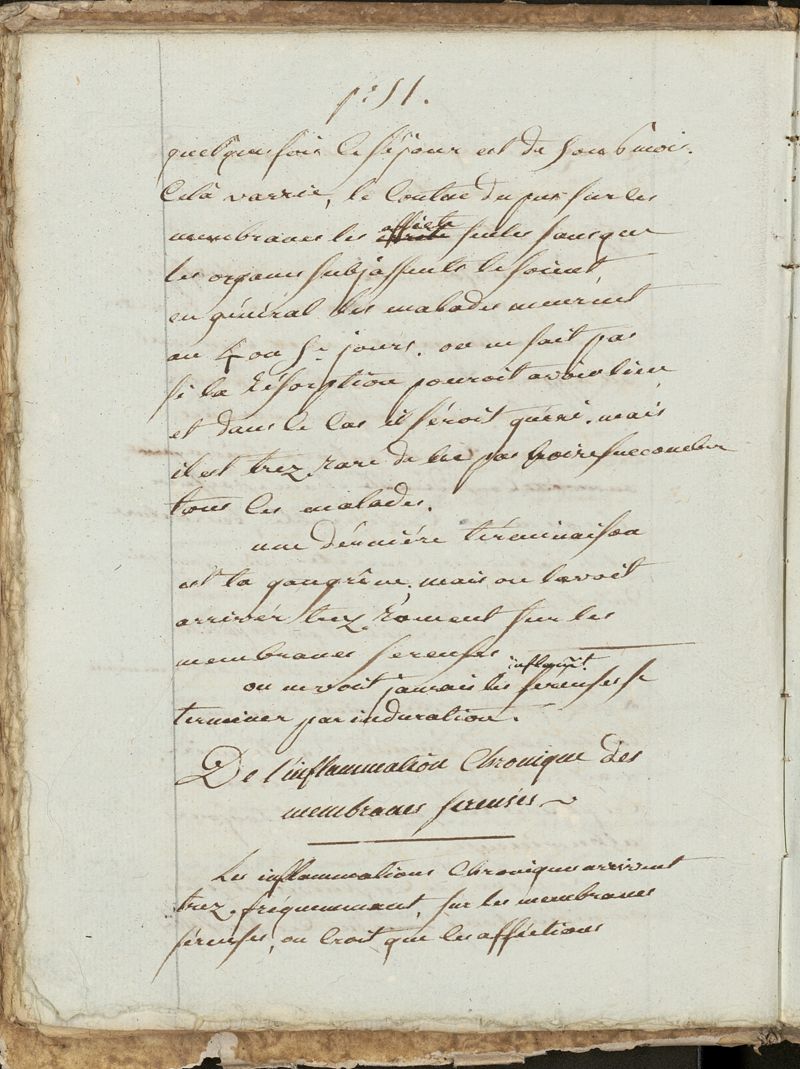 pe 51.
quelques fois le séjour est de 5 ou 6 mois.
Celà varrie, le Contac du pus sur les
membranes les affecte seules sans que
les organes subjassents le soient
en général les malades meurent
au 4 ou 5e jours. on ne sait pas
si la résorption pouroit avoir lieu
et dans ce Cas il séroit quéri. mais
il est trez rare de ne pas voire succomber
tous les malades.
une dérniére términaison
est la gangrêne, mais on la voit
arriver trez rarment sur les
membranes sereuses
on ne voit jamais les inflammt. séreuses se
terminer par induration.
De l'inflammation Chronique des
membranes sereuses
Les inflammations Chroniques arrivent
trez fréquemment, sur les membranes
séreuses, on Croit que les afféctions